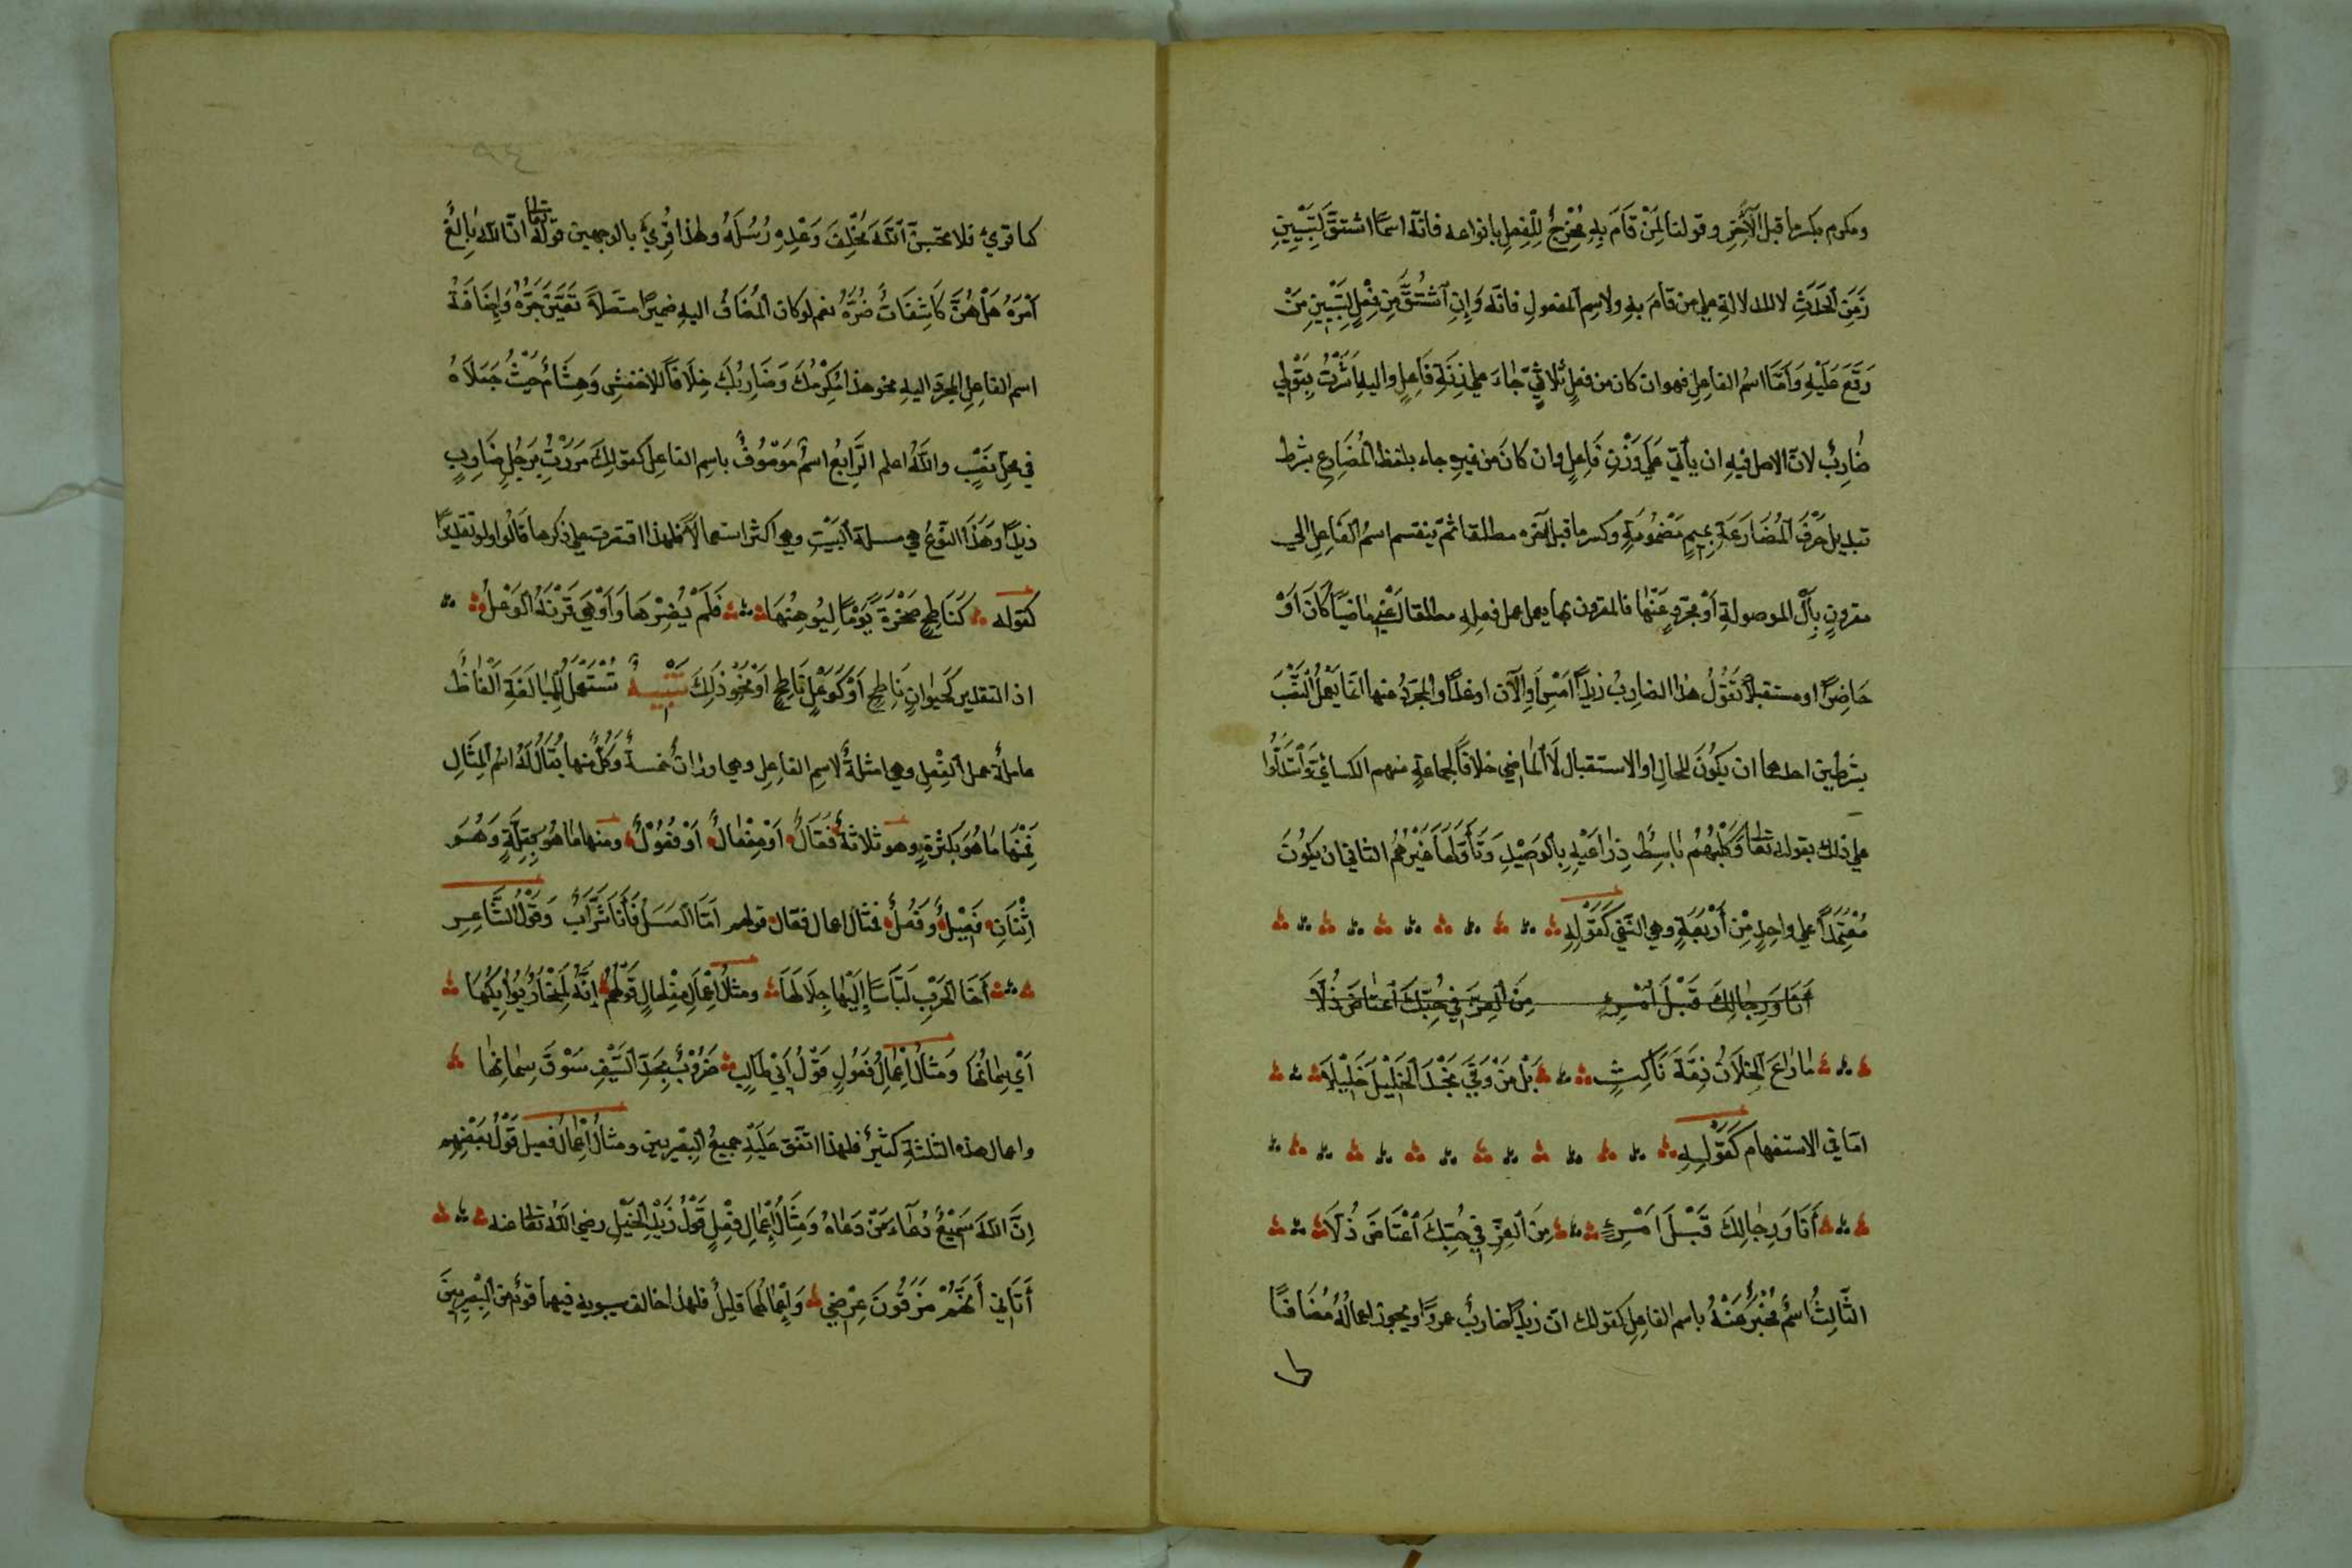 ومكرم بكسر ما قبل الآخر وقولنا لِمَنْ قَامَ بِهِ مُخْرِجٌ لِلْفِعلِ بانواعه فانّه اسمًا اشتقّ لِتَبْيِينِ
زَمَنِ الحَدَثِ لا للدلالة على من قامَ بهِ ولاسِمِ المفعولِ فانّه وَإِنِ اشْتُقَّ مِنْ فِعْلٍ لِتَبْيِينِ مَنْ
وَقَعَ عَلَيْهِ وَأمّا اسمُ الفاعِلِ فهو ان كان من فعلٍ ثلاثيّ جاءَ على زِنَةِ فَاعِلٍ واليهِ أَشَرْتُ بِقَوْلي
ضَارِبٌ لانّ الاصل فيهِ ان يأتي عَلَى وَزْنِ فَاعِلٍ وان كانَ من غيرِهِ جاء بلفظ المُضَارِعِ بشرط
تبديل حَرْفِ المُضَارَعَةِ بمِيمٍ مَضْمُومَةٍ وكسر ما قبل آخره مطلقا ثمّ ينقسم اسمُ الفَاعِلِ الي
مقرونٍ بِأَلْ الموصولةِ أَوْ مجرّدٍ عَنْها فالمقرون بها يعمل عمل فعلِهِ مطلقا اَعْنِي مَاضِيًا كَانَ اَوْ
حَاضِرًا او مستقبلاً تَقُولُ هذا الضارِبُ زيدًا أَمْسِ أوِالآن او غدًا والمجرّدُ منها انّما يَعْمَلُ النَّصْبَ
بشرطين احدهما ان يكونَ للحالِ او الاستقبال لَا الماضي خلافًا لجماعةٍ منهم الكسائيّ وَاسْتَدَلّوا
علي ذلك بقوله تعا وَكَلْبُهُمْ بَاسِطٌ ذِرَاعَيْهِ بِالوَصِيْدِ وَتَأَوَّلَهَا غَيْرُهُمْ الثاني ان يَكُونَ
مُعْتَمَدًا علي واحِدٍ مِّنْ أَرْبَعَةٍ وهي النّفي كَقَوْلِهِ
أَنَا وَرِجَالِكَ قَبْلَ امْرِءٍ مِنَ العِزّ فِي حُبِّكَ اعتاضَ ذُلّا
مَا رَاعَ الخِلَّانُ ذِمَّةَ نَاكِثٍ بَلْ مَنْ وَفَي يَجْدُ الخَلِيْلَ خَلِيْلَا
امّا في الاستفهام كَقَوْلِهِ
أَنَا وَرِجَالِكَ قَبْلَ امْرِءٍ مِنَ العِزِّ فِي حُبِّكَ اعْتَاضَ ذُلّا
الثّالِثُ اسْمٌ مُخْبَرٌ عَنْهُ باسم الفاعِلِ كقولك انّ زيدًا ضاربٌ عمروًا ويجوز اعمالُهُ مُضَافًا
كما قرئ فلا تحسبنّ اللهَ مُخْلِفَ وَعْدِهِ رُسُلَهُ ولهذا قُرِئَ بالوجهين قولهُ تعا انّ الله بَالِغٌ
أَمْرَهُ هَلْ هُنَّ كَاشِفَاتُ ضُرّهِ نعم لو كان المُضَافُ اليهِ ضميرًا متّصلاً تَعَيَّنَ جَرُّهُ وَإِضَافَةُ
اسم الفاعِلِ المجرّد اليهِ نحو هذا مُكْرِمُكَ وَضَارِبُكَ خِلَافًا للاخفشِ وَهِشَامٌ حَيْثُ جَعَلَاهُ
في محلّ نَصْبٍ واللهُ اعلم الرَّابِعُ اسمٌ مَوصُوفٌ باسِمِ الفاعِلِ كقولِكَ مَرَرْتُ بِرَجُلٍ ضَارِبٍ
زيدًا وَهَذَا النّوعُ هي مسـلة البَيْتِ وهي اكثر استعمالاً فلهذا اقتصرت علي ذكرها قالُوا ولو تَقديرًا
كقوله كَنَاطِحٍ صَخْرَةً يَوْمًا لِيُوهِنُهَا فَلَمْ يُضِرْهَا وَأَوْهَي قَرْنَهُ الوَعْلُ
اذ التقدير كَحَيوانٍ نَاطِحٍ أَوْ كَوَعْلٍ نَاطِحٍ أوْ نحْوِ ذَلِكَ تَنْبِيـهٌ تُسْتَعْمَلُ لِلمُبَالَغَةِ الْفَاظٌ
عاملةٌ عملَ الفِعْلِ وهي امثلةٌ لاسِمِ الفاعِلِ وهي اوزانٌ خمسةٌ وَكُلٌّ منها يُقَالُ لَهُ اسْمُ المِثَالِ
فَمِنْهَا مَا هُوَ بِكَثْرَةٍ وهو ثلاثةٌ فَعَّالٌ أَوْ مِفْعَالٌ أَوْ فَعُوْلٌ ومنها مَا هُوَ بِقِلَّةٍ وَهُـوَ
اثْنَانِ فَعِيْلٌ وَفَعِلٌ فمثال اعمال فعّال قولهم امّا العَسَـلَ فَأَنَا شَرَّابٌ وَقَوْلُ الشَّاعِـرِ
أَخَا الحَرْبِ لَبَّاسًا إِلَيْهَا جِلَالَهَا ومثلُ اِعْمَالِ مِفْعَالٍ قَوْلُهُمْ إِنَّهُ لَمِنْحَارٌ بَوَائِكَهَا
أَيْ سِمَانُهَا وَمِثَالُ اِعْمَالِ فَعُولٍ قَوْلُ أَبِي طَالِبٍ ضَرُوْبٌ بِحَدِّ السَّيْفِ سَوْقَ سِمَانِهَا
واعمال هذه الثلثةِ كثيرٌ فلهذا اتّفق عَلَيْهِ جميعُ البصْريين ومثالُ اِعْمَالُ فعيل قَوْلُ بَعْضِهِم
اِنَّ اللهَ سَمِيْعٌ دُعَاءَ مَنْ دَعَاهُ وَمِثَالُ اِعْمَالِ فَعِلٍ قَوْلُ زَيْدِ الخَيْلِ رضي اللهُ تعا عنه
أَتَانِي أَنَّهُمْ مَزِقُونَ عِرْضِي وَاِعْمَالُهُمَا قليلٌ فلهذا خالف سيبويه فيهما قومٌ من البصريينَ